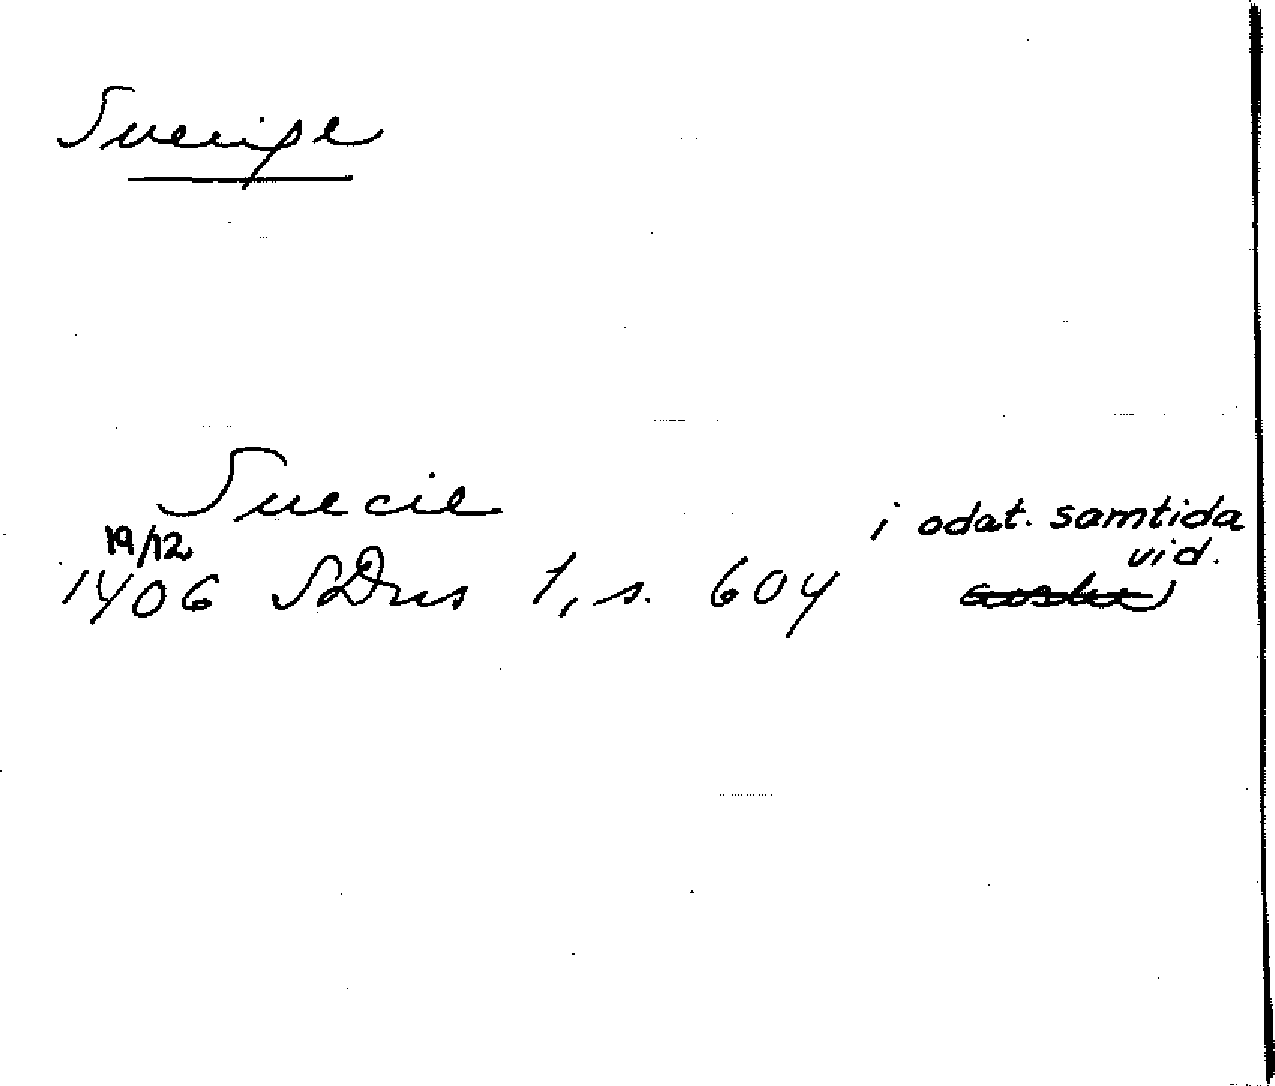 Sverige
Suecie
19/12
1406 SDns 1, s. 604
i odat. samtida
vid.